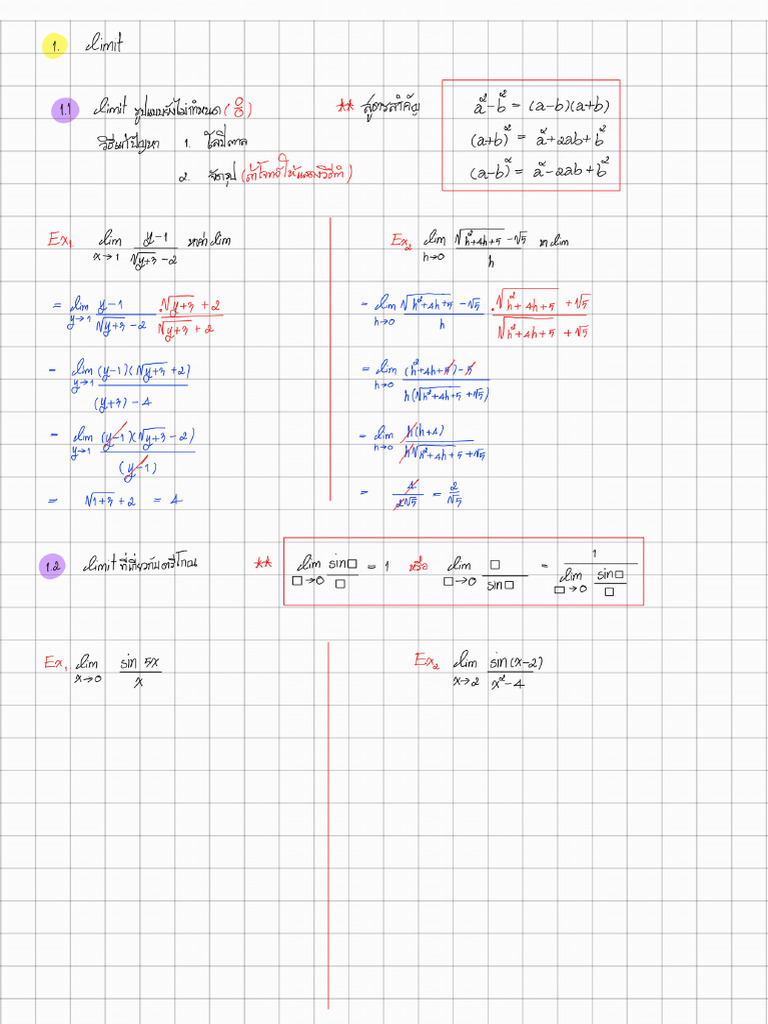 1. limit
1.1 limit รูปแบบยังไม่กำหนด (0/0) ** สูตรสำคัญ a² - b² = (a-b)(a+b)
วิธีแก้ปัญหา 1. โลปิตาล (a+b)² = a² + 2ab + b²
2. จัดรูป (ถ้าโจทย์ให้แสดงวิธีทำ) (a-b)² = a² - 2ab + b²
Ex₁ lim x→1 (y-1)/(√(y+3) - 2) หาค่า lim
= lim y→1 (y-1)/(√(y+3) - 2) · (√(y+3) + 2)/(√(y+3) + 2)
- lim y→1 (y-1)(√(y+3) + 2)/((y+3) - 4)
- lim y→1 (y-1)(√(y+3) - 2)/(y-1)
= √(1+3) + 2 = 4
Ex₂ lim h→0 (√(h²+4h+5) - √5)/h หา lim
= lim h→0 (√(h²+4h+5) - √5)/h · (√(h²+4h+5) + √5)/(√(h²+4h+5) + √5)
= lim h→0 ((h²+4h+5) - 5)/(h(√(h²+4h+5) + √5))
= lim h→0 h(h+4)/(h√(h²+4h+5) + √5)
= 4/(2√5) = 2/√5
1.2 limit ที่เกี่ยวกับตรีโกณ ** lim □→0 sin□/□ = 1 หรือ lim □→0 □/sin□ = 1/(lim □→0 sin□/□)
Ex₁ lim x→0 sin 5x/x
Ex₂ lim x→2 sin(x-2)/(x²-4)